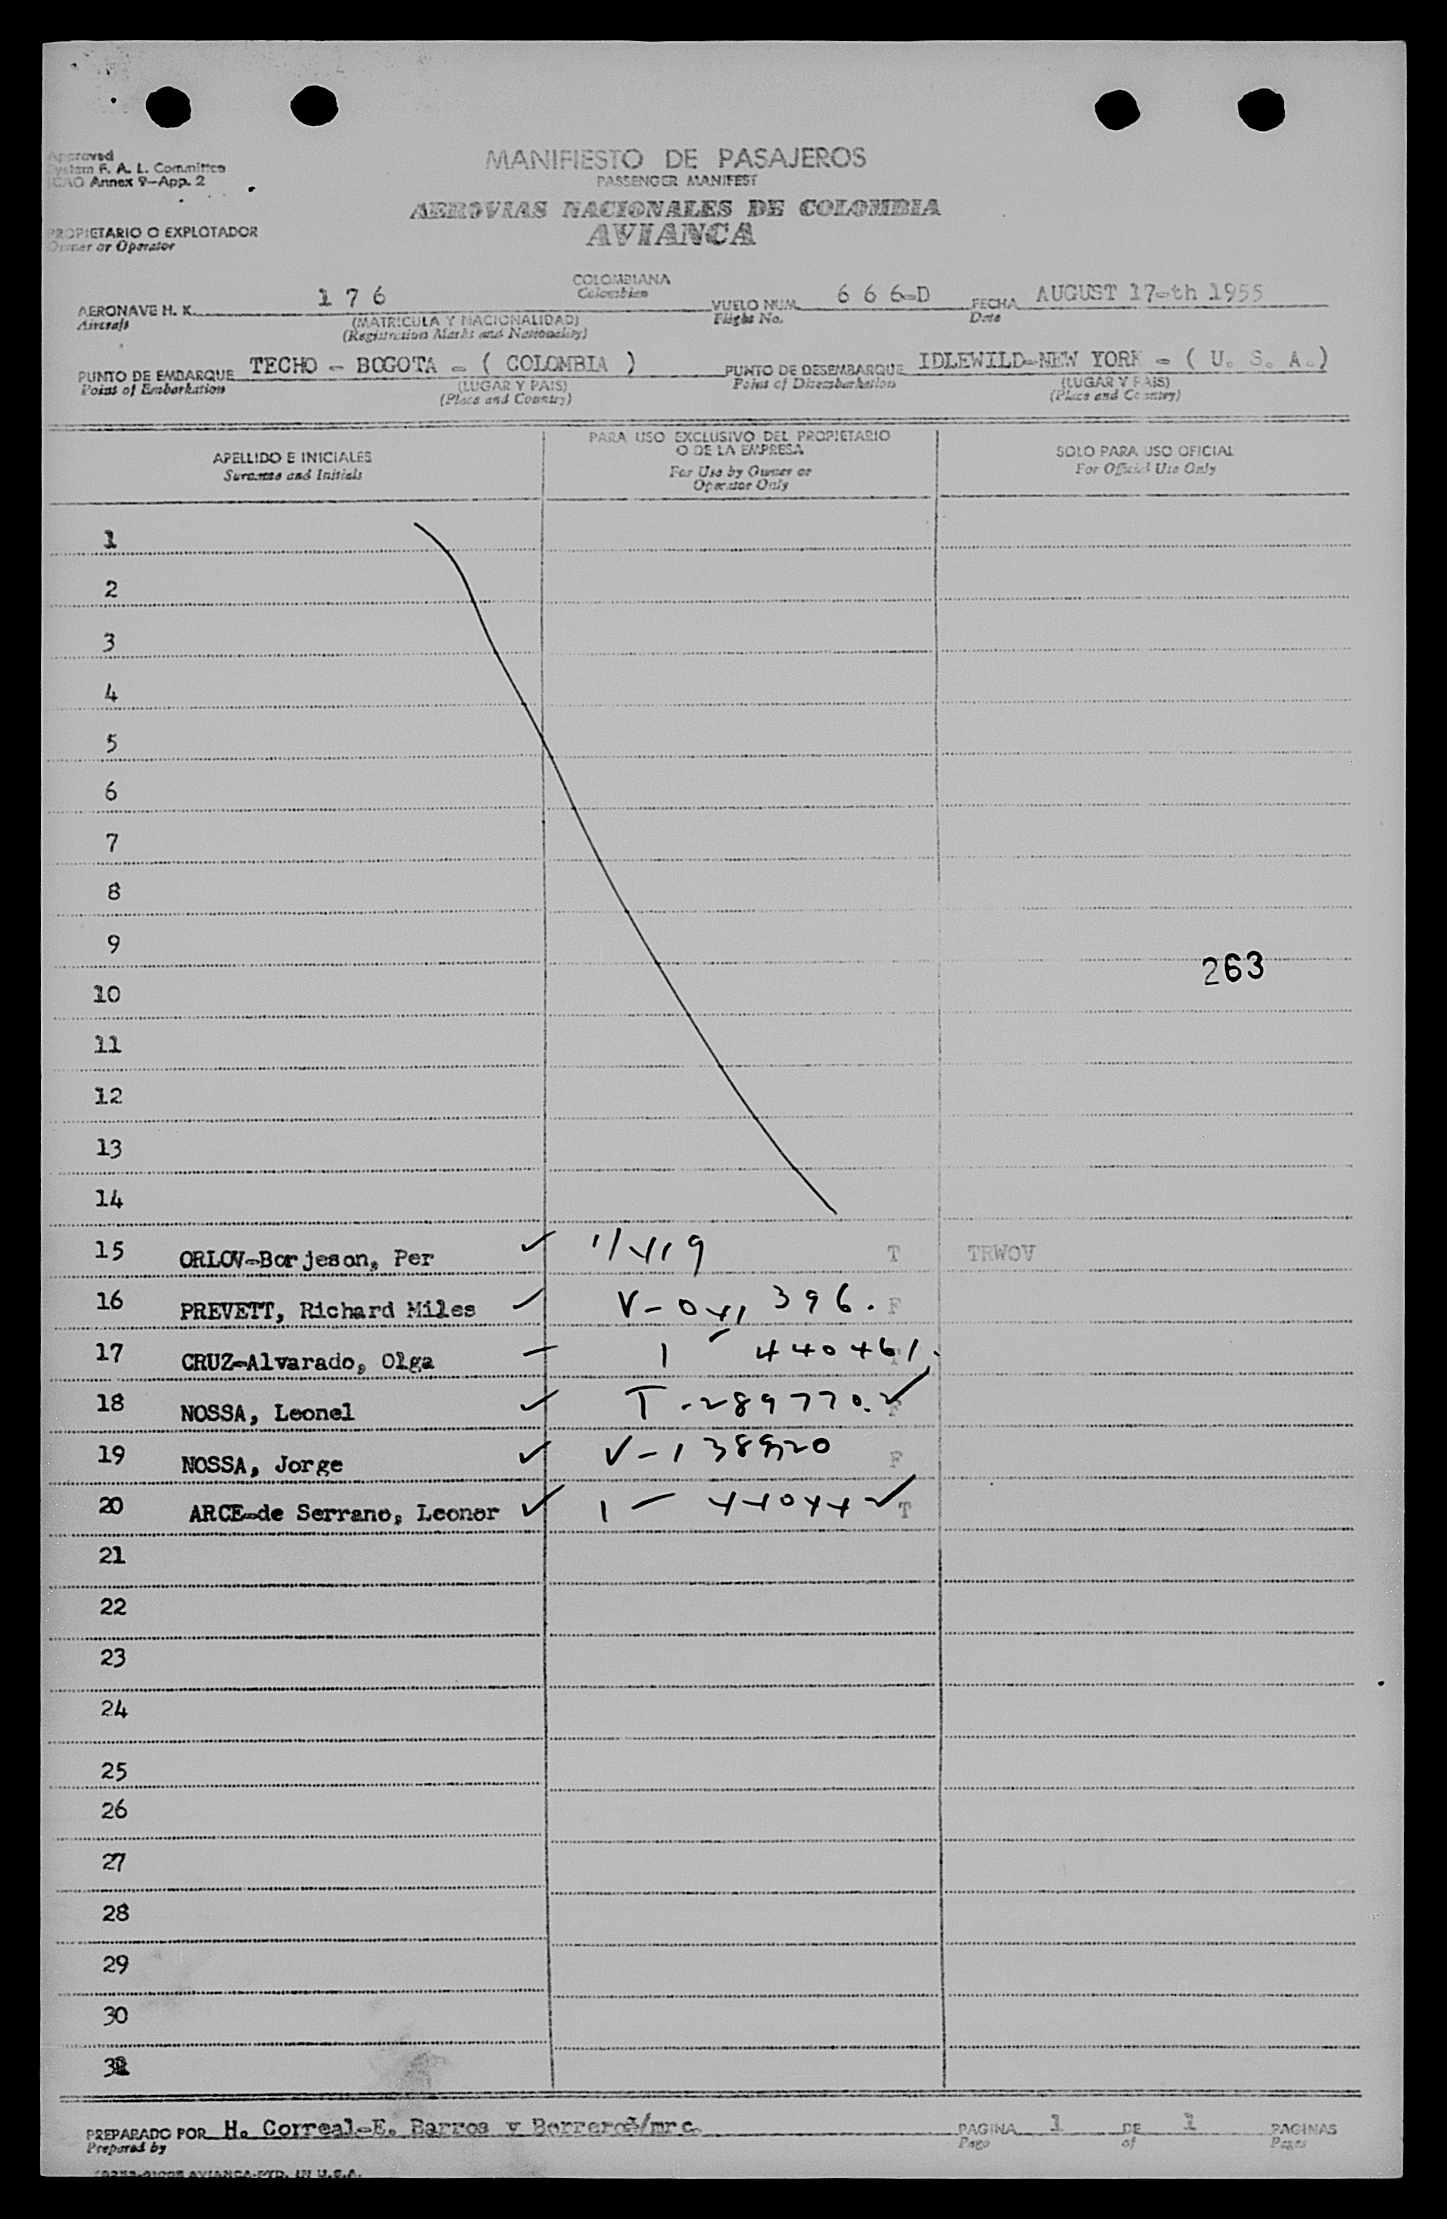 Approved
System F. A. L. Committee
ICAO Annex 9—App. 2
MANIFIESTO DE PASAJEROS
PASSENGER MANIFEST
AEROVIAS NACIONALES DE COLOMBIA
AVIANCA
PROPIETARIO O EXPLOTADOR
Owner or Operator
AERONAVE H. K. 1 7 6 COLOMBIANA VUELO NUM. 6 6 6-D FECHA AUGUST 17-th 1955
Aircraft Colombian Flight No. Date
(MATRICULA Y NACIONALIDAD)
(Registration Marks and Nationality)
PUNTO DE EMBARQUE TECHO - BOGOTA - ( COLOMBIA ) PUNTO DE DESEMBARQUE IDLEWILD-NEW YORK - ( U. S. A.)
Point of Embarkation (LUGAR Y PAIS) Point of Disembarkation (LUGAR Y PAIS)
(Place and Country) (Place and Country)
APELLIDO E INICIALES
Surname and Initials
PARA USO EXCLUSIVO DEL PROPIETARIO
O DE LA EMPRESA
For Use by Owner or
Operator Only
SOLO PARA USO OFICIAL
For Official Use Only
1
2
3
4
5
6
7
8
9
263
10
11
12
13
14
15 ORLOV-Borjeson, Per ✓ T TRWOV
16 PREVETT, Richard Miles ✓ F
17 CRUZ-Alvarado, Olga 1 440461.
18 NOSSA, Leonel ✓ T-289770. ✓ F
19 NOSSA, Jorge ✓ F
20 ARCE-de Serrano, Leonor ✓ 1 - 44044 ✓ T
21
22
23
24
25
26
27
28
29
30
PREPARADO POR H. Correal-E. Barros y Borrero/mrc. PAGINA 1 DE 1 PAGINAS
Prepared by Page of Pages